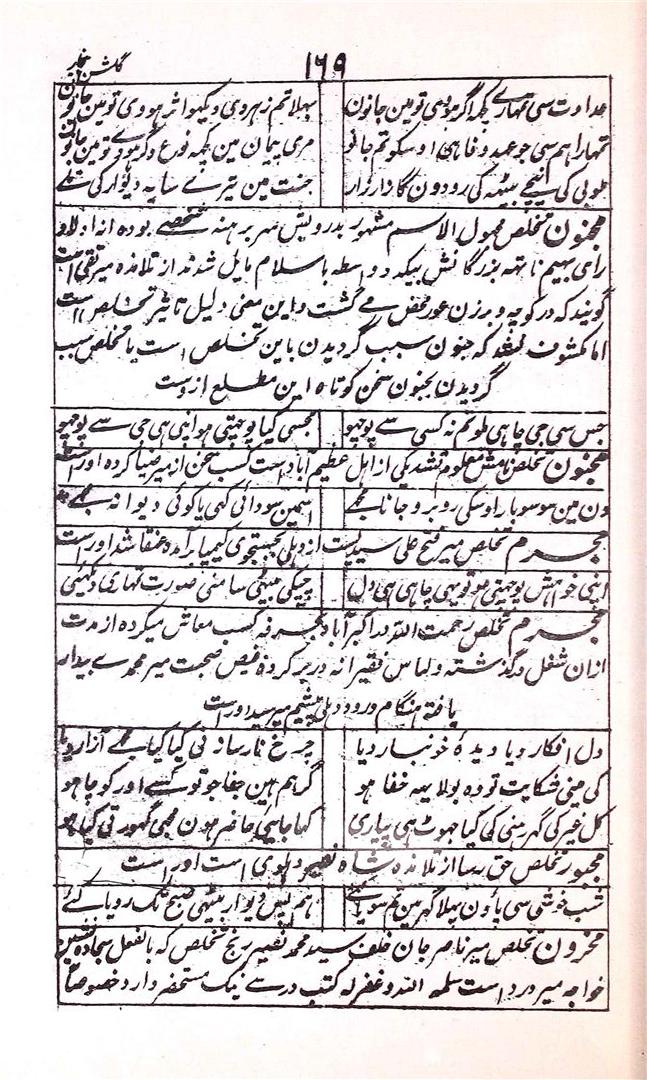 ۱۶۹
گلشن بیخار
عداوت سی تمہارے کچھ اگر ہووی تو مین جانون بہلا تم زہر دی دیکہو اثر ہووی تو مین جانون
تمہارا ہم سی جو عہد وفا ہی اوسکو تم جانو مری پیمان مین کچھ فرع دگر ہووے تو مین جانون
طوبی کی نیچے بیٹھ کی رودون گا زار زار جنت مین تیرے سایہ دیوار کی تلے
مجنون تخلص مجہول الاسم مشہور بدرویش سر برہنہ شخصے بودہ از اولاد
رای بہیم ناتہہ بزرگانش بیکدو واسطہ باسلام مایل شدند از تلامذہ میر تقی است
گویند کہ در کوچہ و برزن عور محض مے گشت و این معنی دلیل تاثیر تخلص است
اما مکشوف نیفتد کہ جنون سبب گردیدن باین تخلص است یا تخلص سبب
گردیدن بجنون سخن کوتاہ این مطلع ازوست
جس سی جی چاہی ملو تم نہ کسی سے پوچہو مجہسی کیا پوچہتی ہو اپنی ہی جی سے پوچہو
مجنون تخلص نامش معلوم نشد یکی از اہل عظیم آباد است کسب سخن از میر ضیا کردہ اوراست
دن مین سو سو بار اوسکی روبرو جانا مجہے اسمین سودائی کہی یا کوئی دیوانہ مجہے
مجرم تخلص میر فتح علی سیدیست از دہلی بجستجوی کیمیا برآمدہ عنقا شد اوراست
اپنی خواہش پوچہتی ہو تو یہی چاہی ہی دل چپکی بیٹھی سامنی صورت تمہاری دیکہئی
مجرم تخلص رحمت اللہ در اکبر آباد بحرفہ کسب معاش میکردہ از مدت
ازان شغل درگذشتہ و لباس فقیرانہ در بر کردہ فیض صحبت میر محمدے بیدار
یافتہ ہنگام ورود دہلی پیشم رسید اوراست
دل افگار دیا دیدۂ خونبار دیا چرخ ناساز نی کیا کیا مجہے آزار دیا
کی مینی شکایت تو وہ بولا یہہ خفا ہو گر ہم ہین جفا جو تو کسے اور کو چاہو
کل غیر کی گہر مینی کی کیا جہوٹ ہی پیاری کہا جایی حاضر ہون مجہی گہورتی کیا ہو
مجبور تخلص حق رسا از تلامذہ شاہ نصیر دہلوی است اوراست
شب خوشی سی پاؤن پہیلا گہر مین تم سویا کئے ہم پس دیوار بیٹھی صبح تلک رویا کئے
محزون تخلص میر ناصر جان خلف سید محمد نصیر رنج تخلص کہ بالفعل سجادہ نشین
خواجہ میر درد است سلمہ اللہ و غفر لہ کتب درسے نیک مستحضر دارد خصوصاً